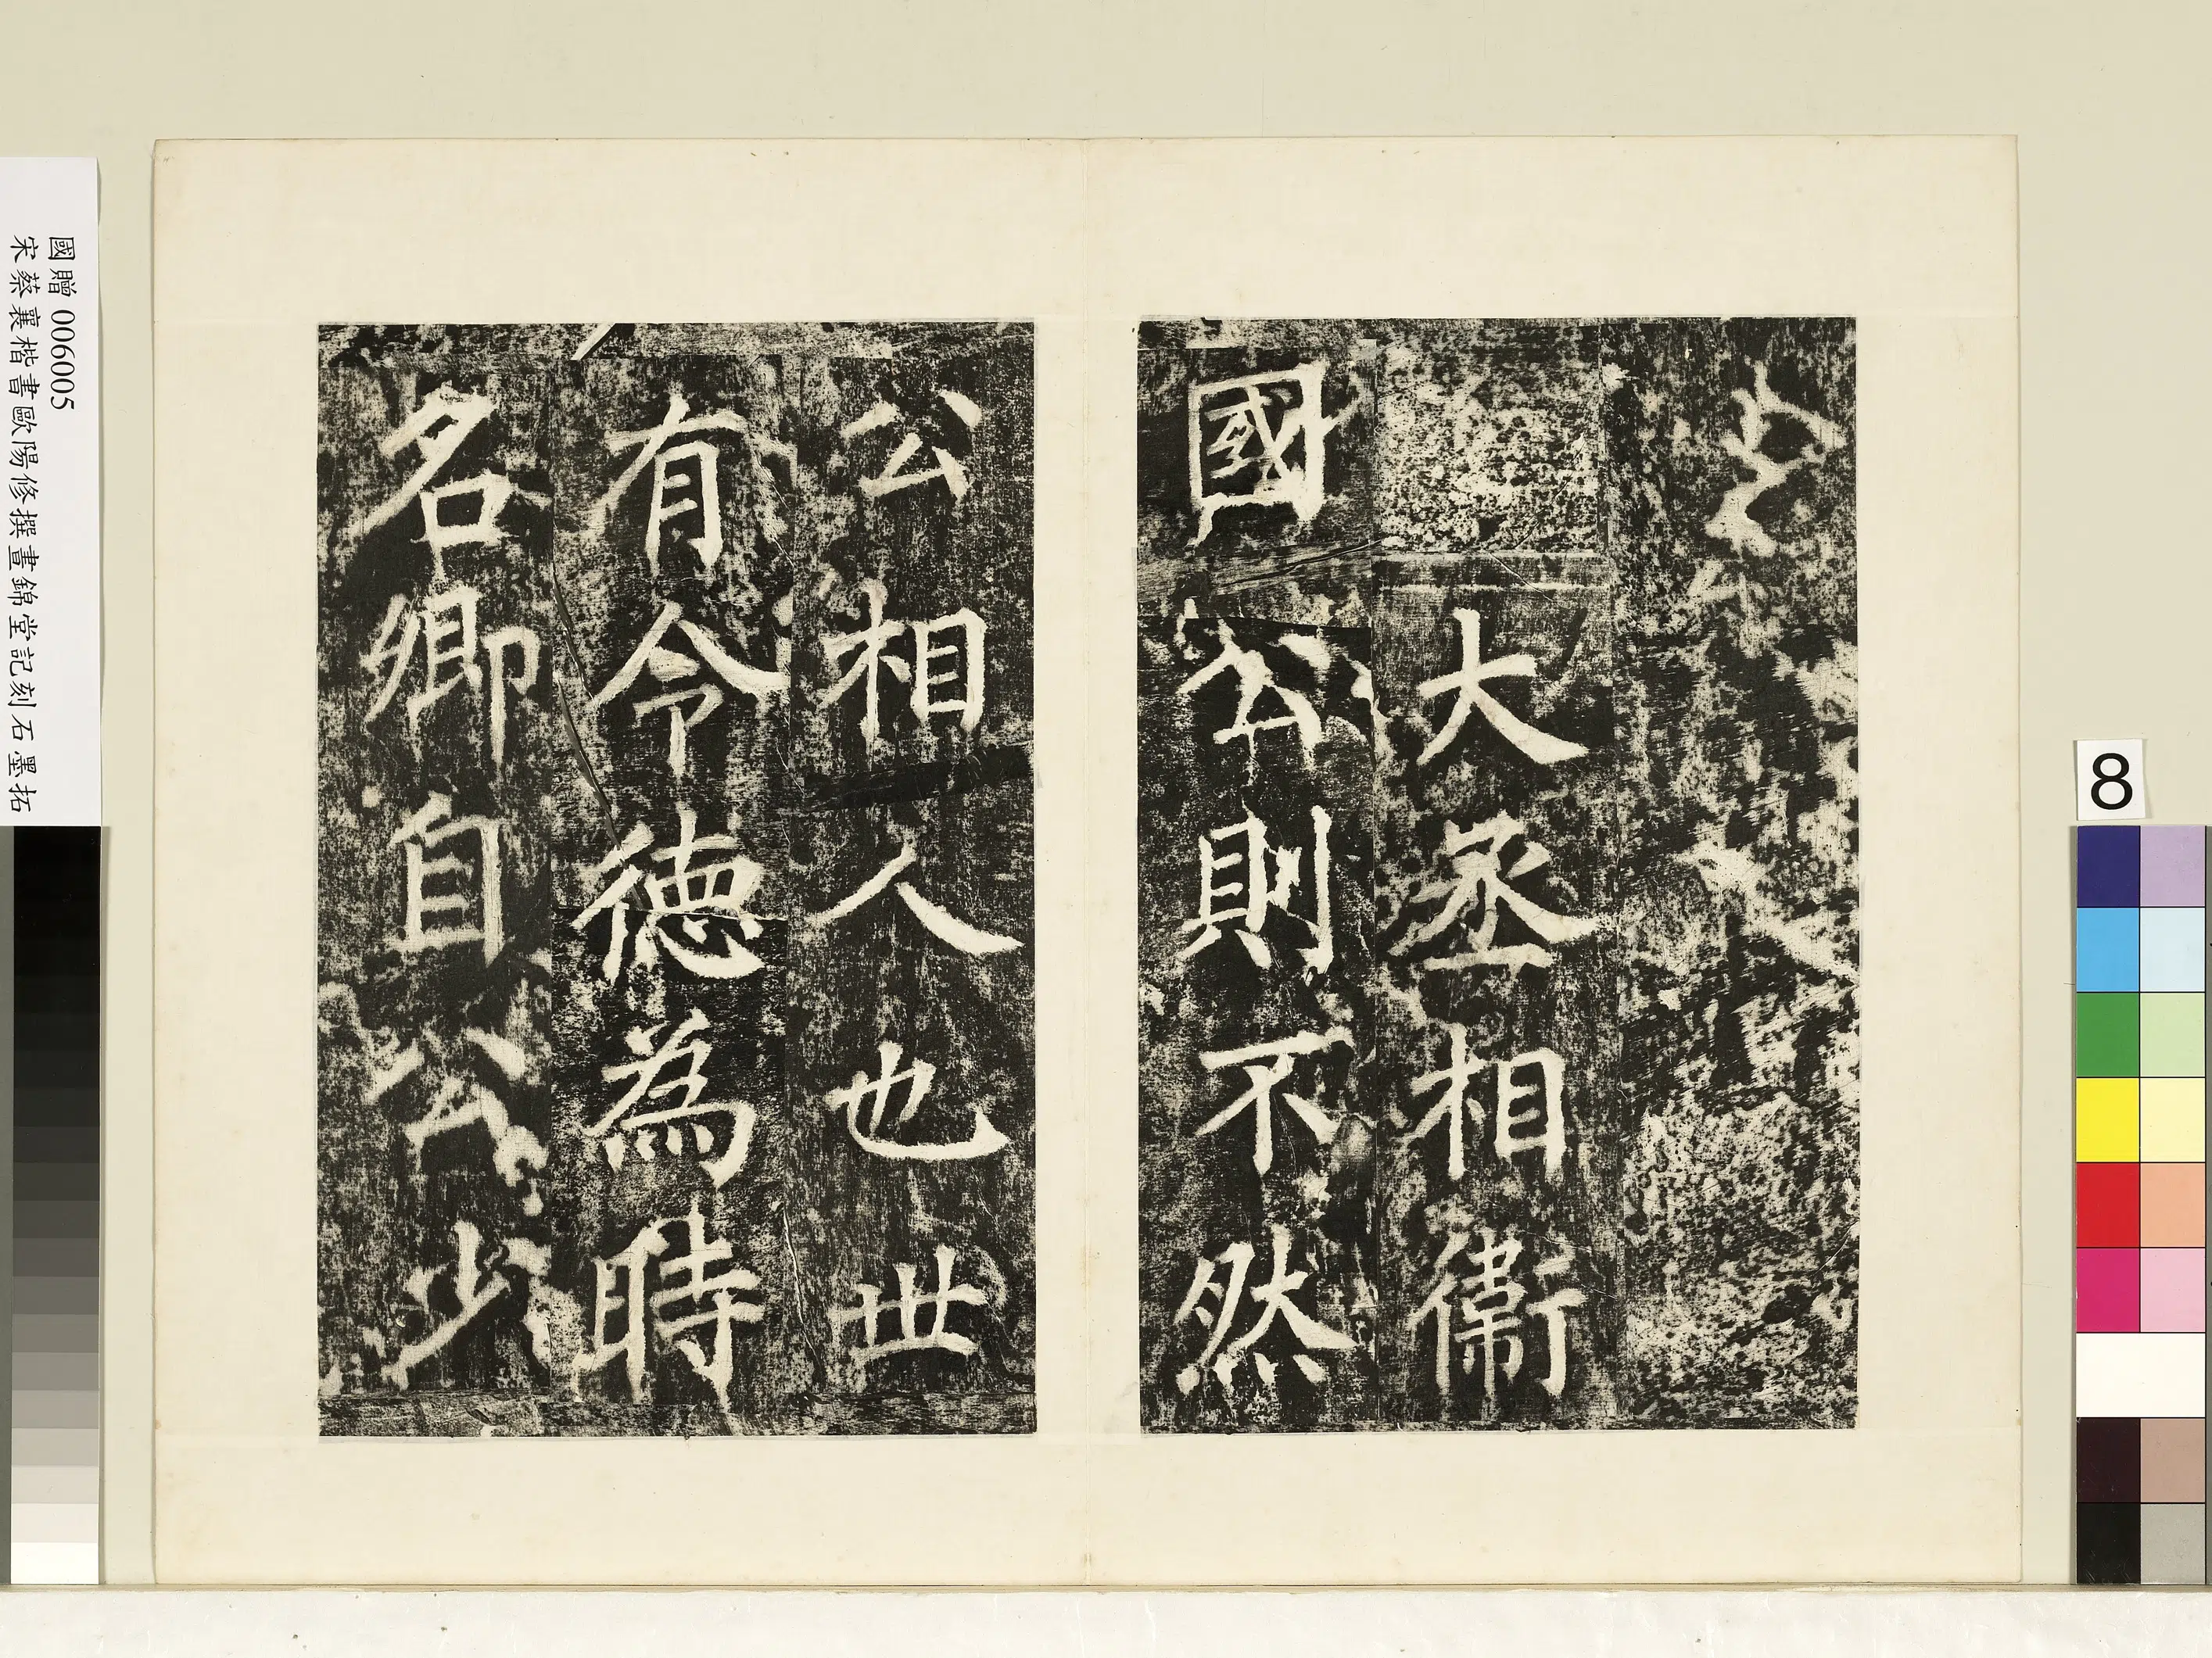 大丞相衞
國公則不然
公相人也世
有令德為時
名卿自公少
國贈 006005
宋蔡襄楷書歐陽修撰晝錦堂記刻石墨拓
8